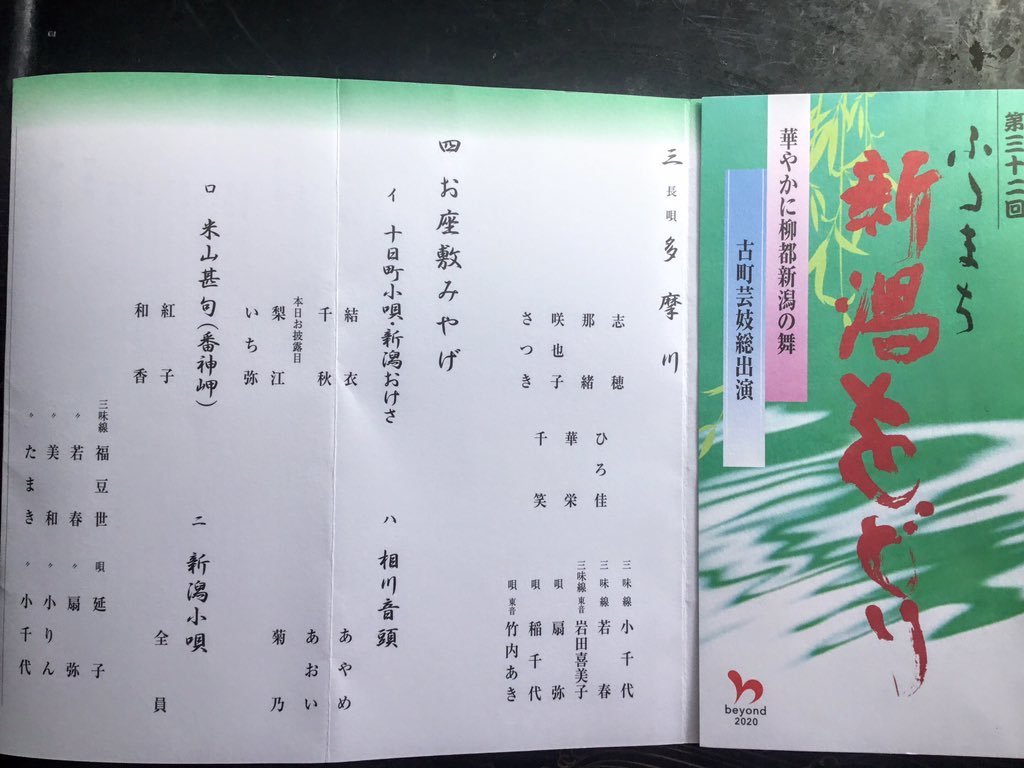 第三十二回
ふるまち
新潟をどり
華やかに柳都新潟の舞
古町芸妓総出演
beyond
2020
三 長唄 多摩川
志穂
那緒
咲也子
さつき
ひろ佳
華栄
千笑
三味線 小千代
三味線 若春
三味線 東音 岩田喜美子
唄 扇弥
唄 稲千代
唄 東音 竹内あき
四 お座敷みやげ
イ 十日町小唄・新潟おけさ
結衣
千秋
本日お披露目
梨江
いち弥
ハ 相川音頭
あやめ
あおい
菊乃
ロ 米山甚句(番神岬)
紅子
和香
二 新潟小唄
全員
三味線 福豆世 唄 延子
〃 若春 〃 扇弥
〃 美和 〃 小りん
〃 たまき 〃 小千代